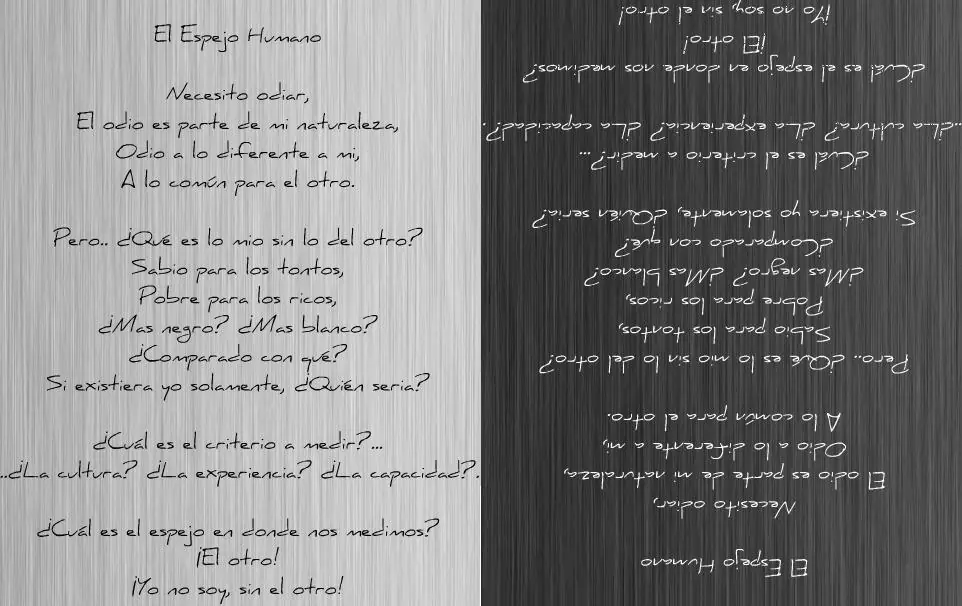 El Espejo Humano
Necesito odiar,
El odio es parte de mi naturaleza,
Odio a lo diferente a mi,
A lo común para el otro.
Pero.. ¿Qué es lo mio sin lo del otro?
Sabio para los tontos,
Pobre para los ricos,
¿Mas negro? ¿Mas blanco?
¿Comparado con qué?
Si existiera yo solamente, ¿Quién seria?
¿Cuál es el criterio a medir?...
...¿La cultura? ¿La experiencia? ¿La capacidad?.
¿Cuál es el espejo en donde nos medimos?
¡El otro!
¡Yo no soy, sin el otro!
¡Yo no soy, sin el otro!
¡El otro!
¿Cuál es el espejo en donde nos medimos?
...¿La cultura? ¿La experiencia? ¿La capacidad?.
¿Cuál es el criterio a medir?...
Si existiera yo solamente, ¿Quién seria?
¿Comparado con qué?
¿Mas negro? ¿Mas blanco?
Pobre para los ricos,
Sabio para los tontos,
Pero.. ¿Qué es lo mio sin lo del otro?
A lo común para el otro.
Odio a lo diferente a mi,
El odio es parte de mi naturaleza,
Necesito odiar,
El Espejo Humano